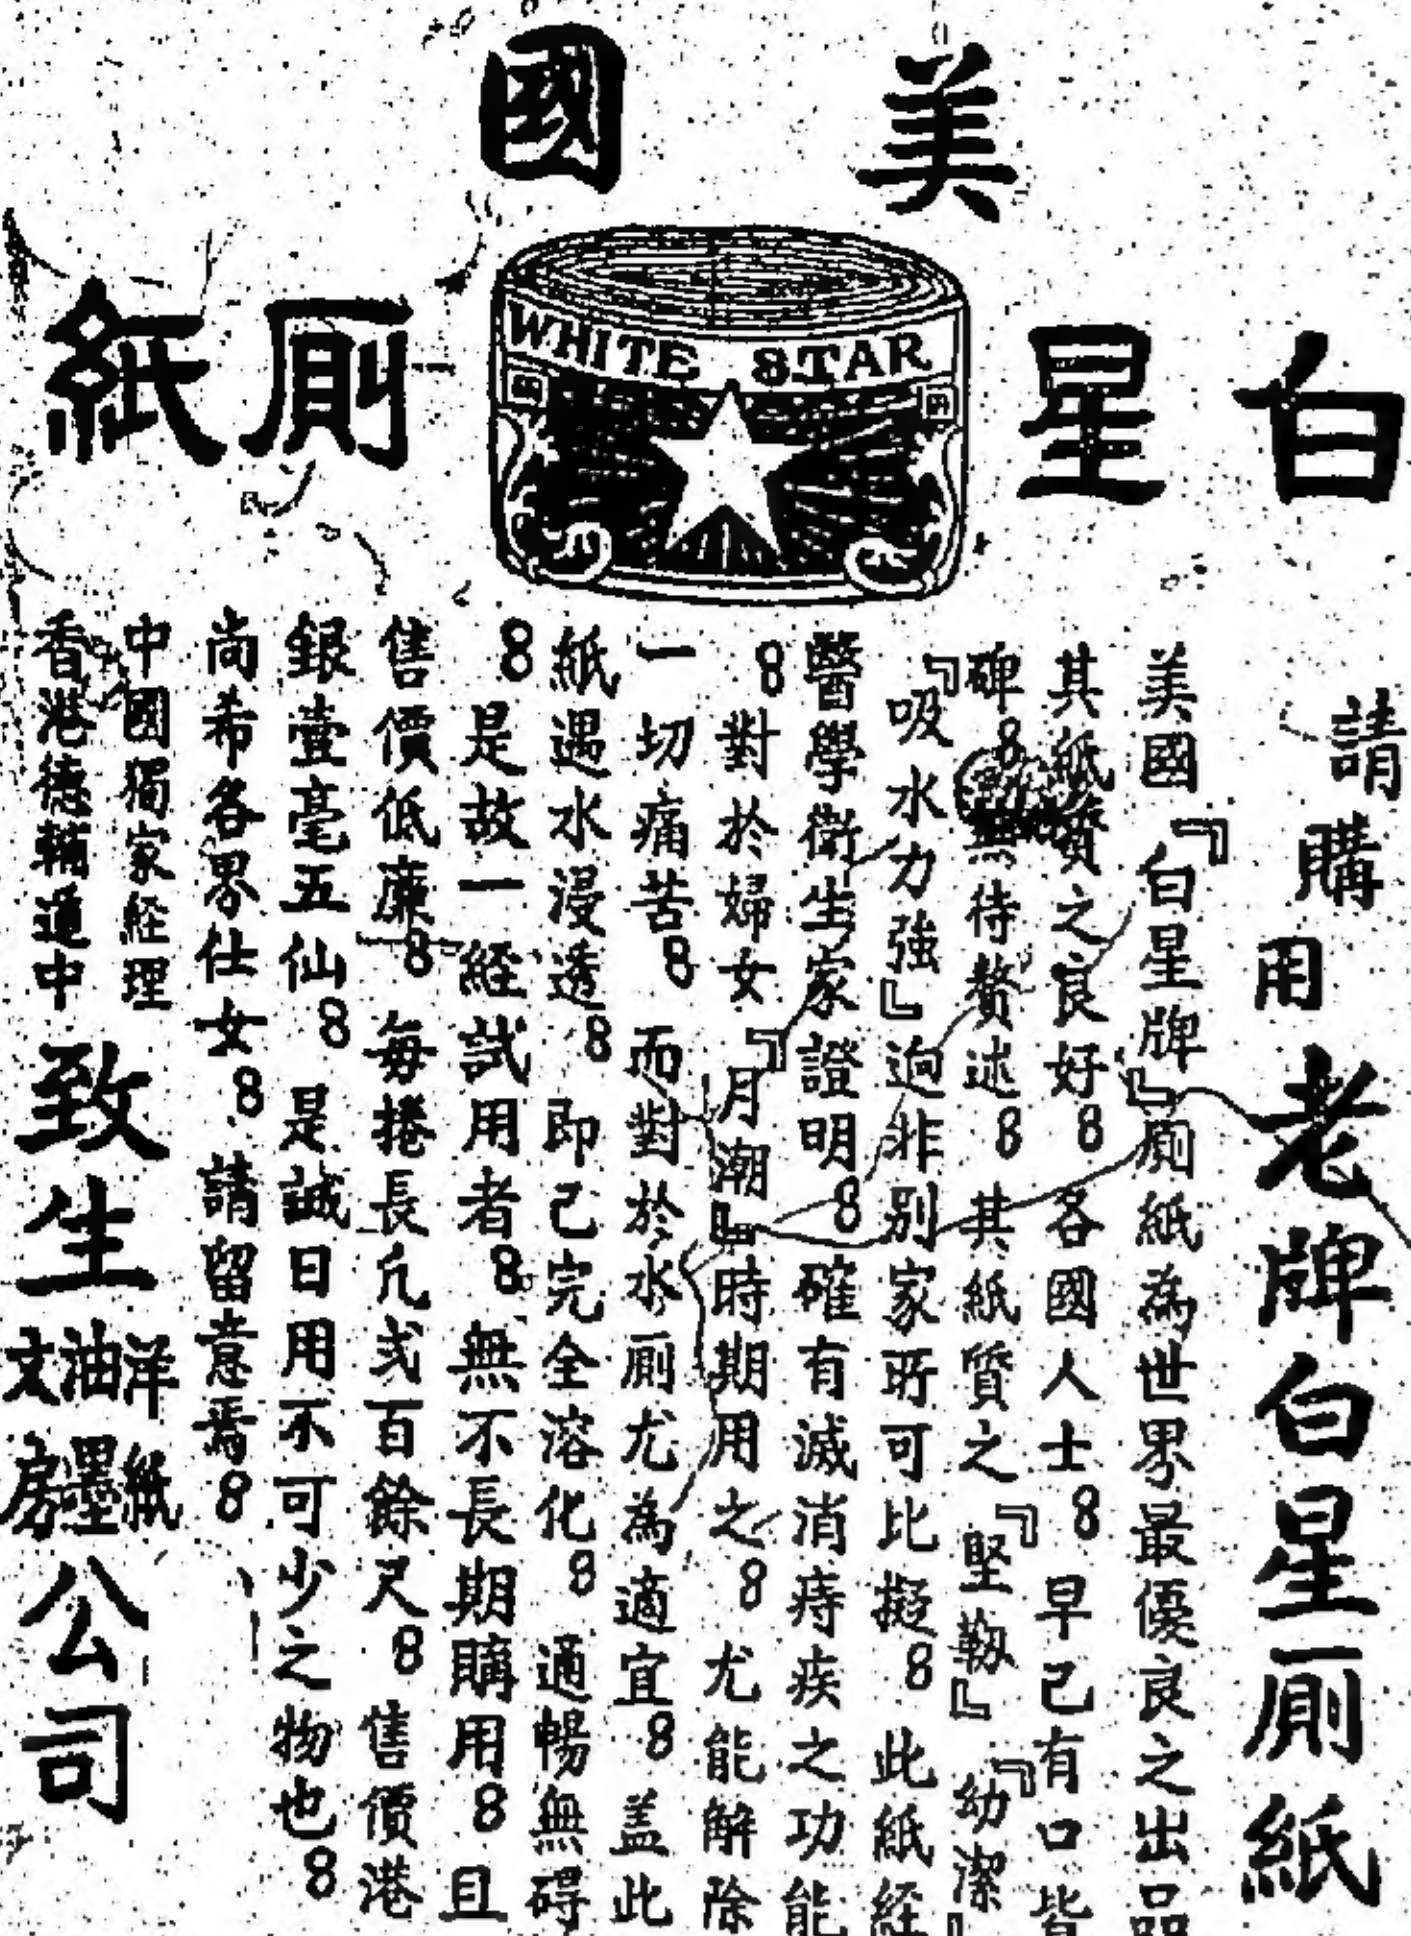 美國
白星廁紙
WHITE STAR
請購用老牌白星厠紙
美國『白星牌』厠紙為世界最優良之出品
其紙質之良好8各國人士8早己有口皆
碑8無待贅述8其紙質之『堅韌』『幼潔』
『吸水力強』逈非別家所可比擬8此紙経
醫學衛生家證明8確有滅消痔疾之功能
8對於婦女『月潮』時期用之8尤能解除
一切痛苦8而對於水厠尤為適宜8盖此
紙遇水浸透8即己完全溶化8通暢無碍
8是故一経試用者8無不長期購用8且
售價低廉8每捲長凢弍百餘尺8售價港
銀壹毫五仙8是誠日用不可少之物也8
尚希各界仕女8請留意焉8
中國獨家経理
香港德輔道中
致生洋紙油墨文房公司